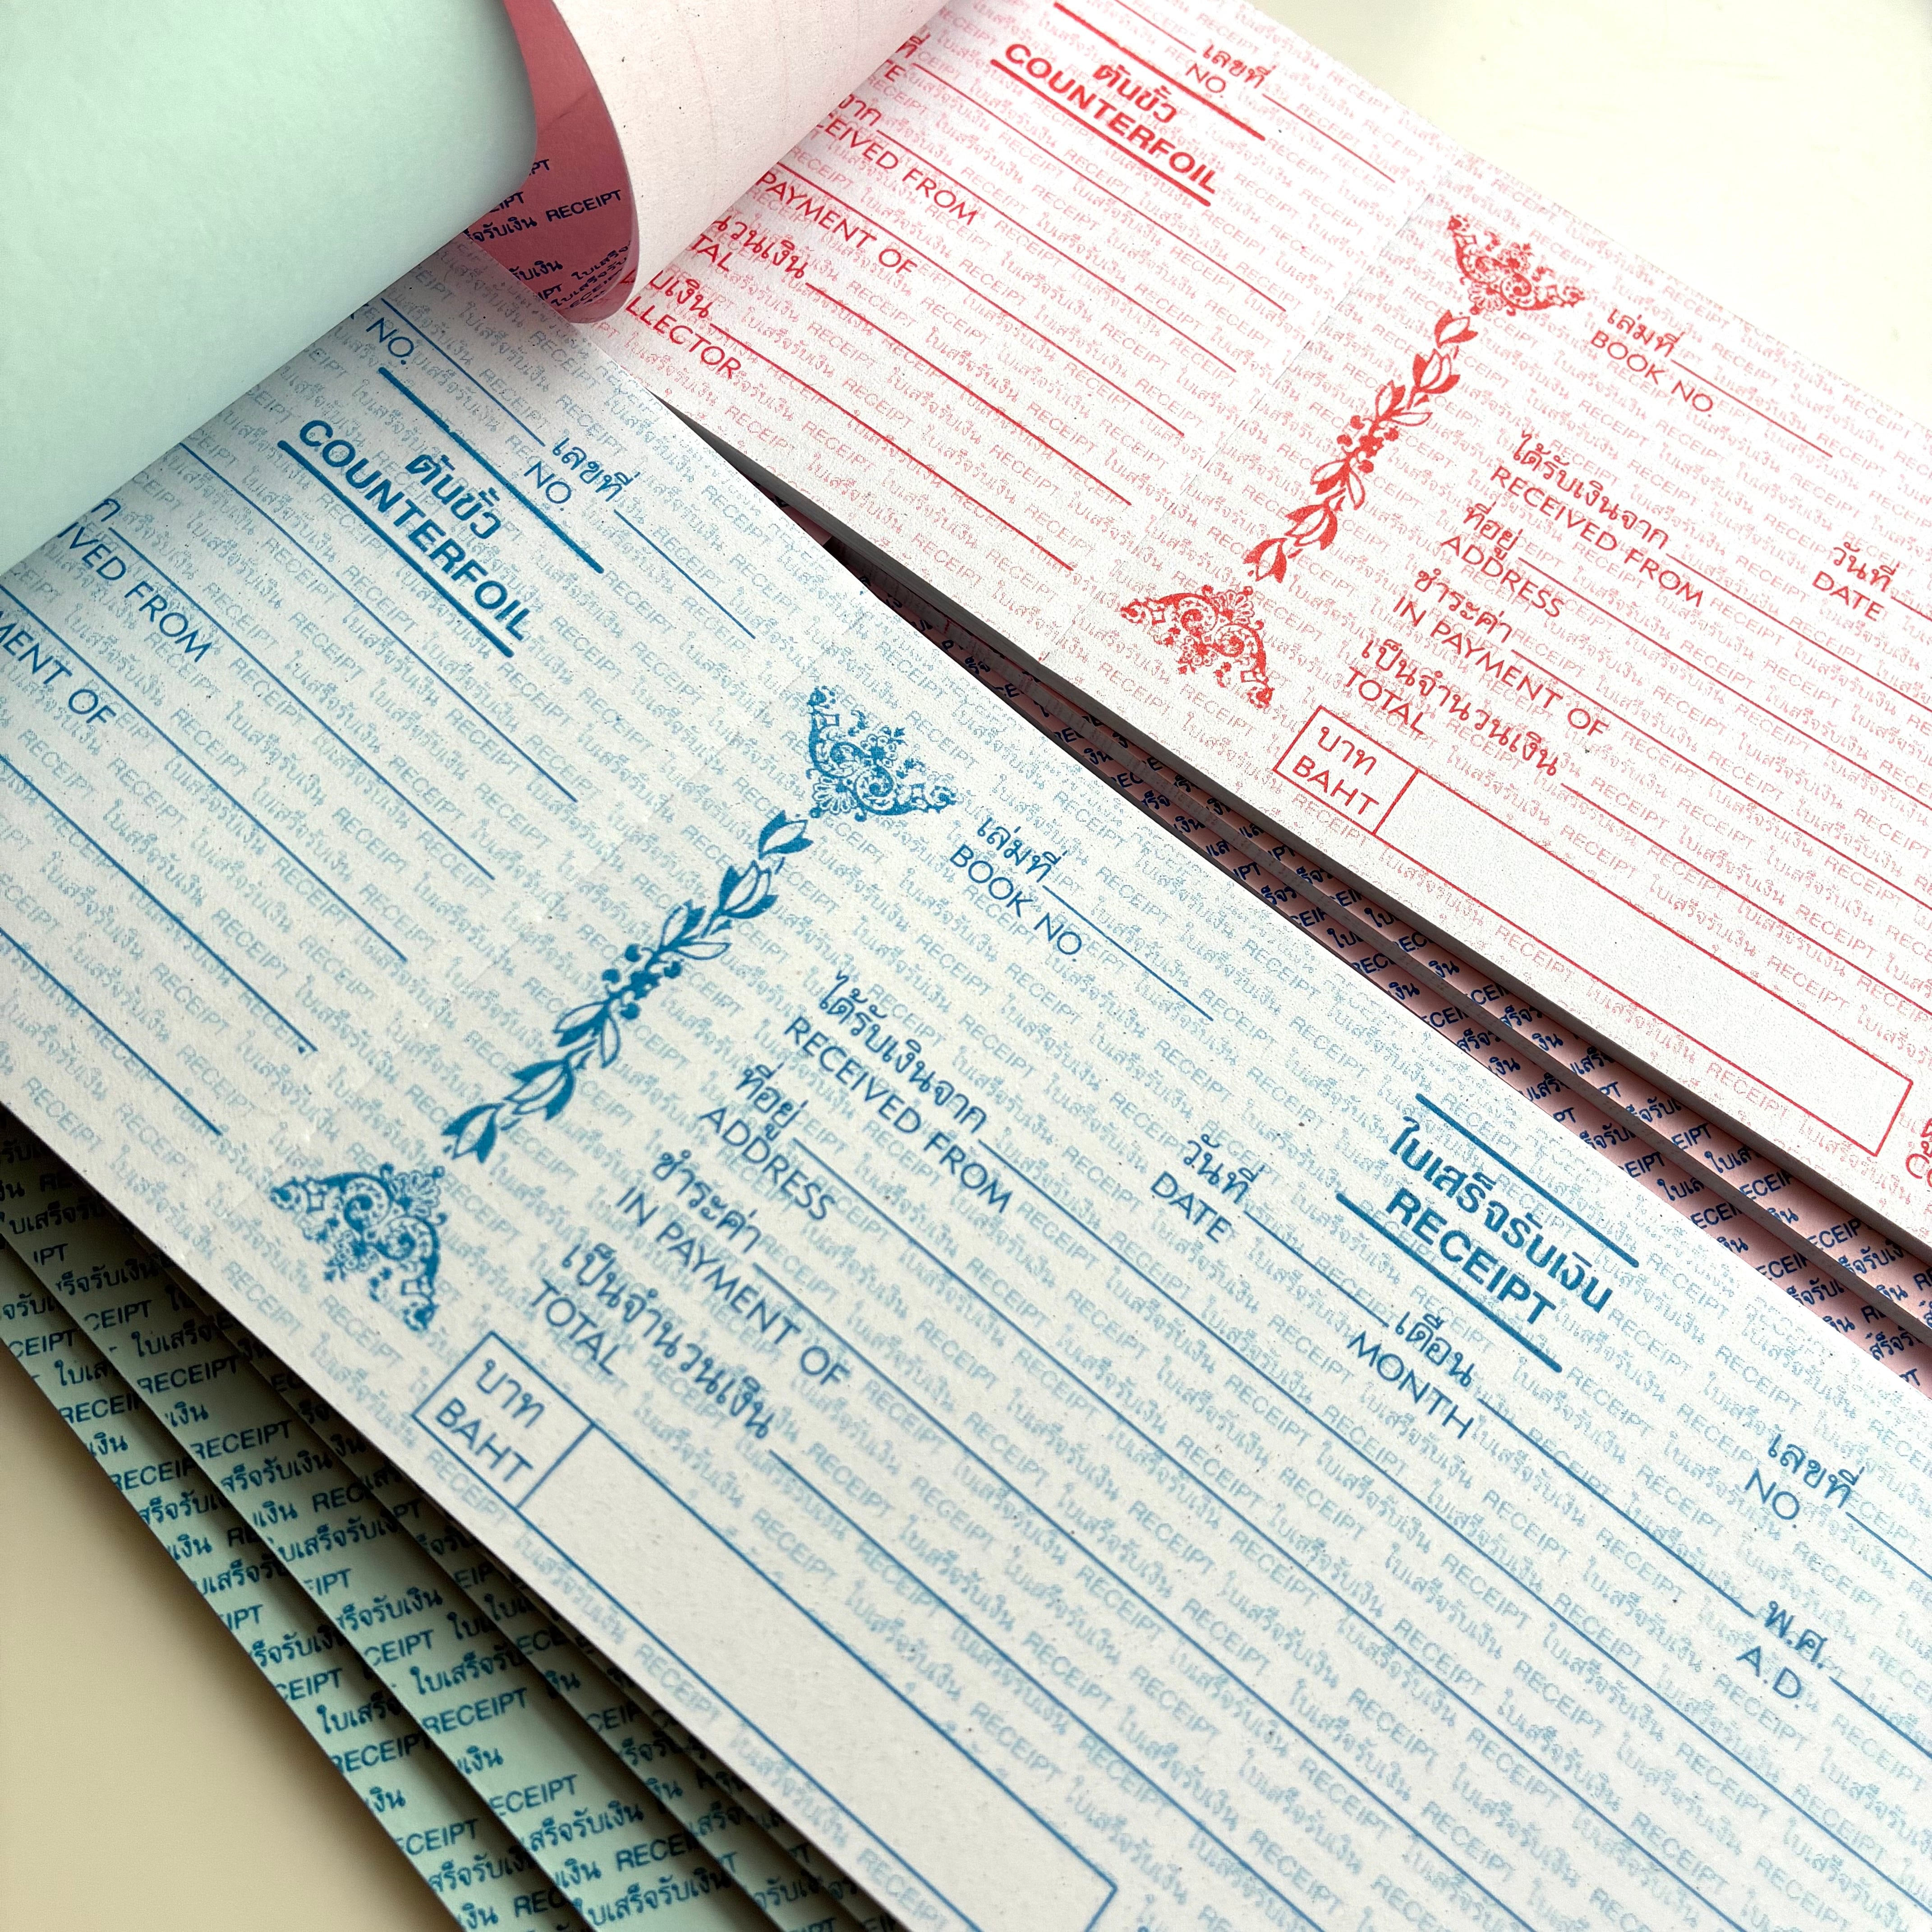 NO.
เลขที่
NO.
ต้นขั้ว
COUNTERFOIL
RECEIVED FROM
PAYMENT OF
เล่มที่
BOOK NO.
ใบเสร็จรับเงิน
RECEIPT
เลขที่
NO.
วันที่
DATE
เดือน
MONTH
พ.ศ.
A.D.
ได้รับเงินจาก
RECEIVED FROM
ที่อยู่
ADDRESS
ชำระค่า
IN PAYMENT OF
เป็นจำนวนเงิน
TOTAL
บาท
BAHT
เลขที่
NO.
ต้นขั้ว
COUNTERFOIL
RECEIVED FROM
PAYMENT OF
จำนวนเงิน
TOTAL
COLLECTOR
เล่มที่
BOOK NO.
วันที่
DATE
ได้รับเงินจาก
RECEIVED FROM
ที่อยู่
ADDRESS
ชำระค่า
IN PAYMENT OF
เป็นจำนวนเงิน
TOTAL
บาท
BAHT
ใบเสร็จรับเงิน RECEIPT